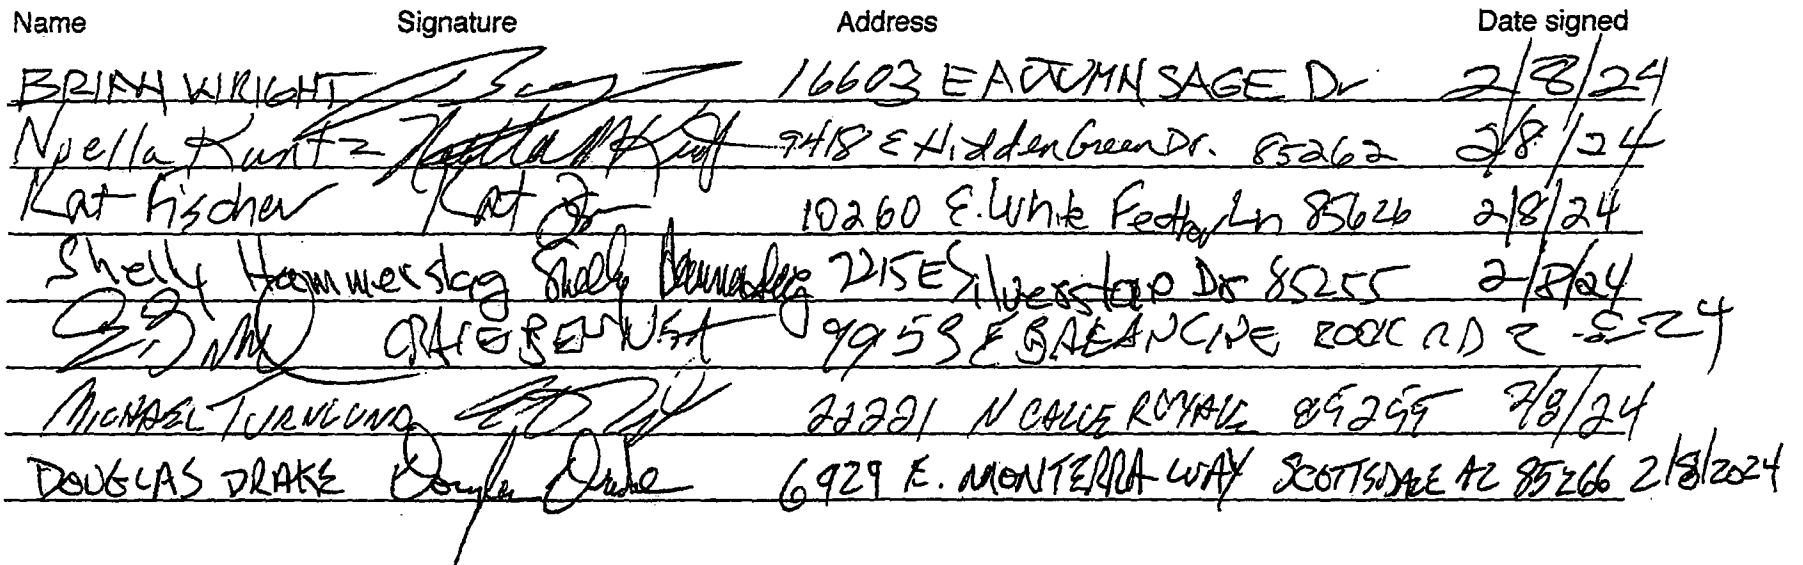 Name Signature Address Date signed
BRIAN WRIGHT 16603 E AUTUMN SAGE Dr 2/8/24
Noella Kuntz 9418 E Hidden Green Dr. 85262 2/8/24
Kat Fischer Kat 10260 E. White Feather Ln 85626 2/8/24
Shelly Hammerslag Shelly Hammerslag 7215 E Silverstar Dr 85255 2/8/24
9953 E BALANCING ROCK RD 2-8-24
MICHAEL TURNLUND 22221 N CALLE ROYALE 85255 2/8/24
DOUGLAS DRAKE Douglas Drake 6929 E. MONTERRA WAY SCOTTSDALE AZ 85266 2/8/2024